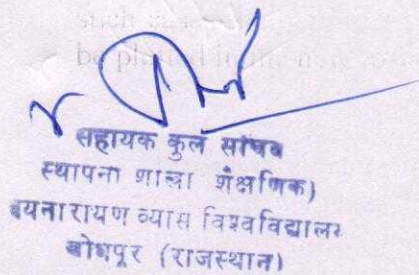 such
be pl
सहायक कुल सचिव
स्थापना शाखा शैक्षणिक)
जयनारायण व्यास विश्वविद्यालय
जोधपुर (राजस्थान)